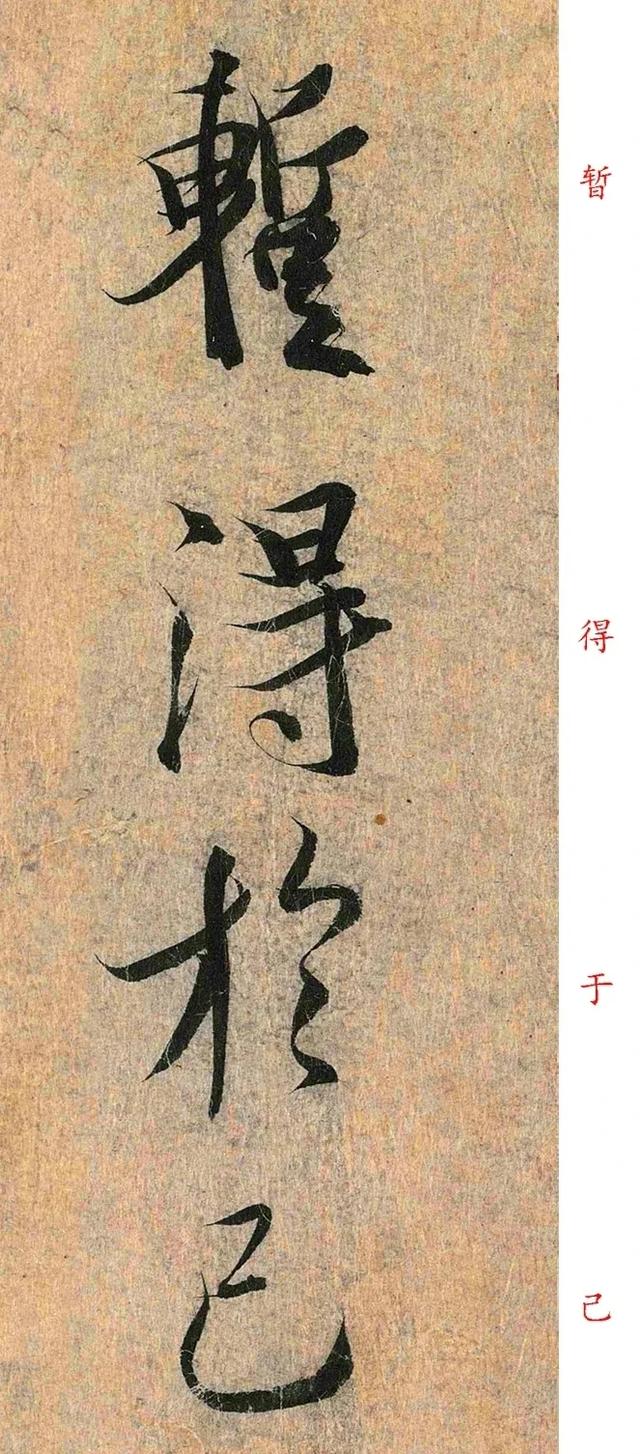 暫得於己
暂得于己